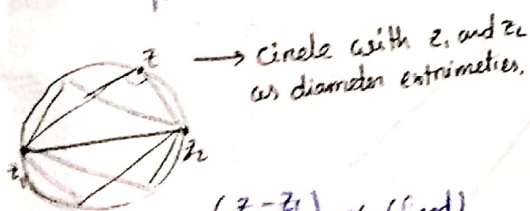 z → circle with z₁ and z₂
as diameter extrimeties.
z₂
z₁
(z - z₁)